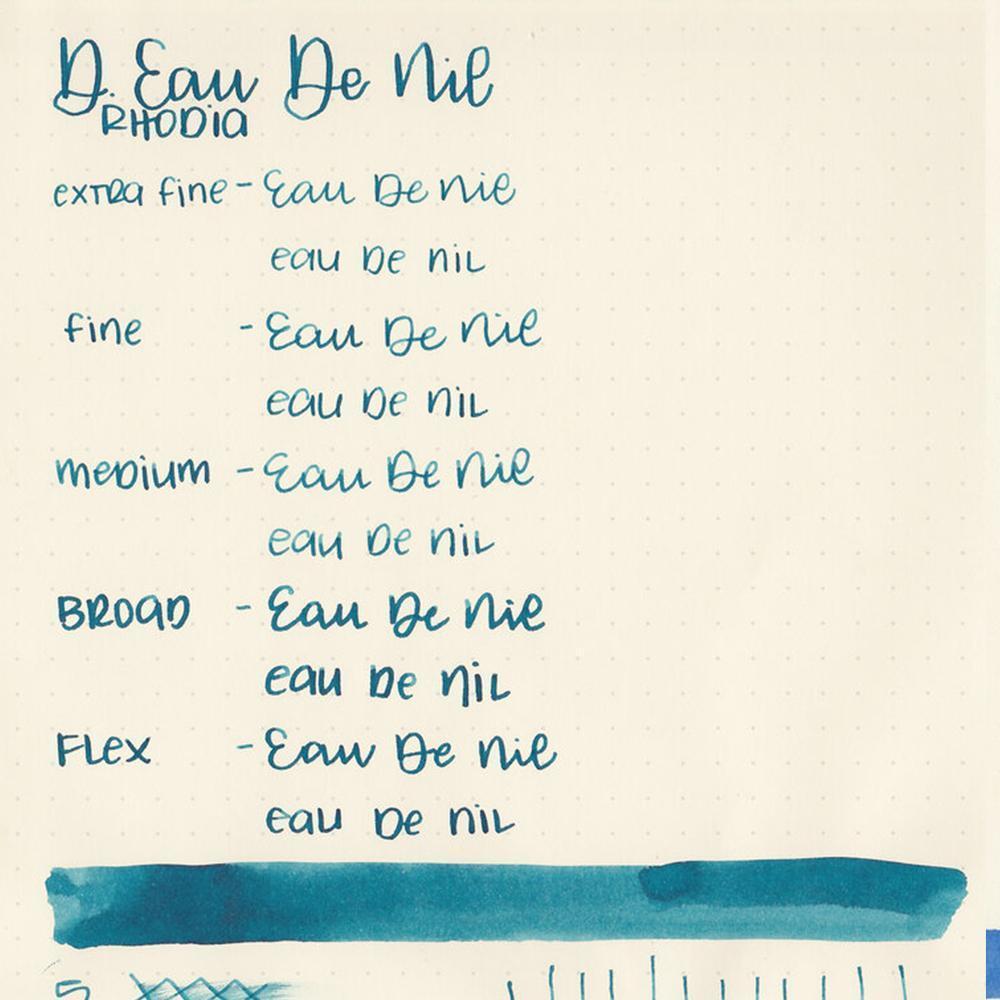 D. Eau De Nil
RHODIA
extra fine - Eau De Nil
eau De nil
fine - Eau De Nil
eau De nil
medium - Eau De Nil
eau De nil
BROAD - Eau De Nil
eau De nil
Flex - Eau De Nil
eau De nil
5